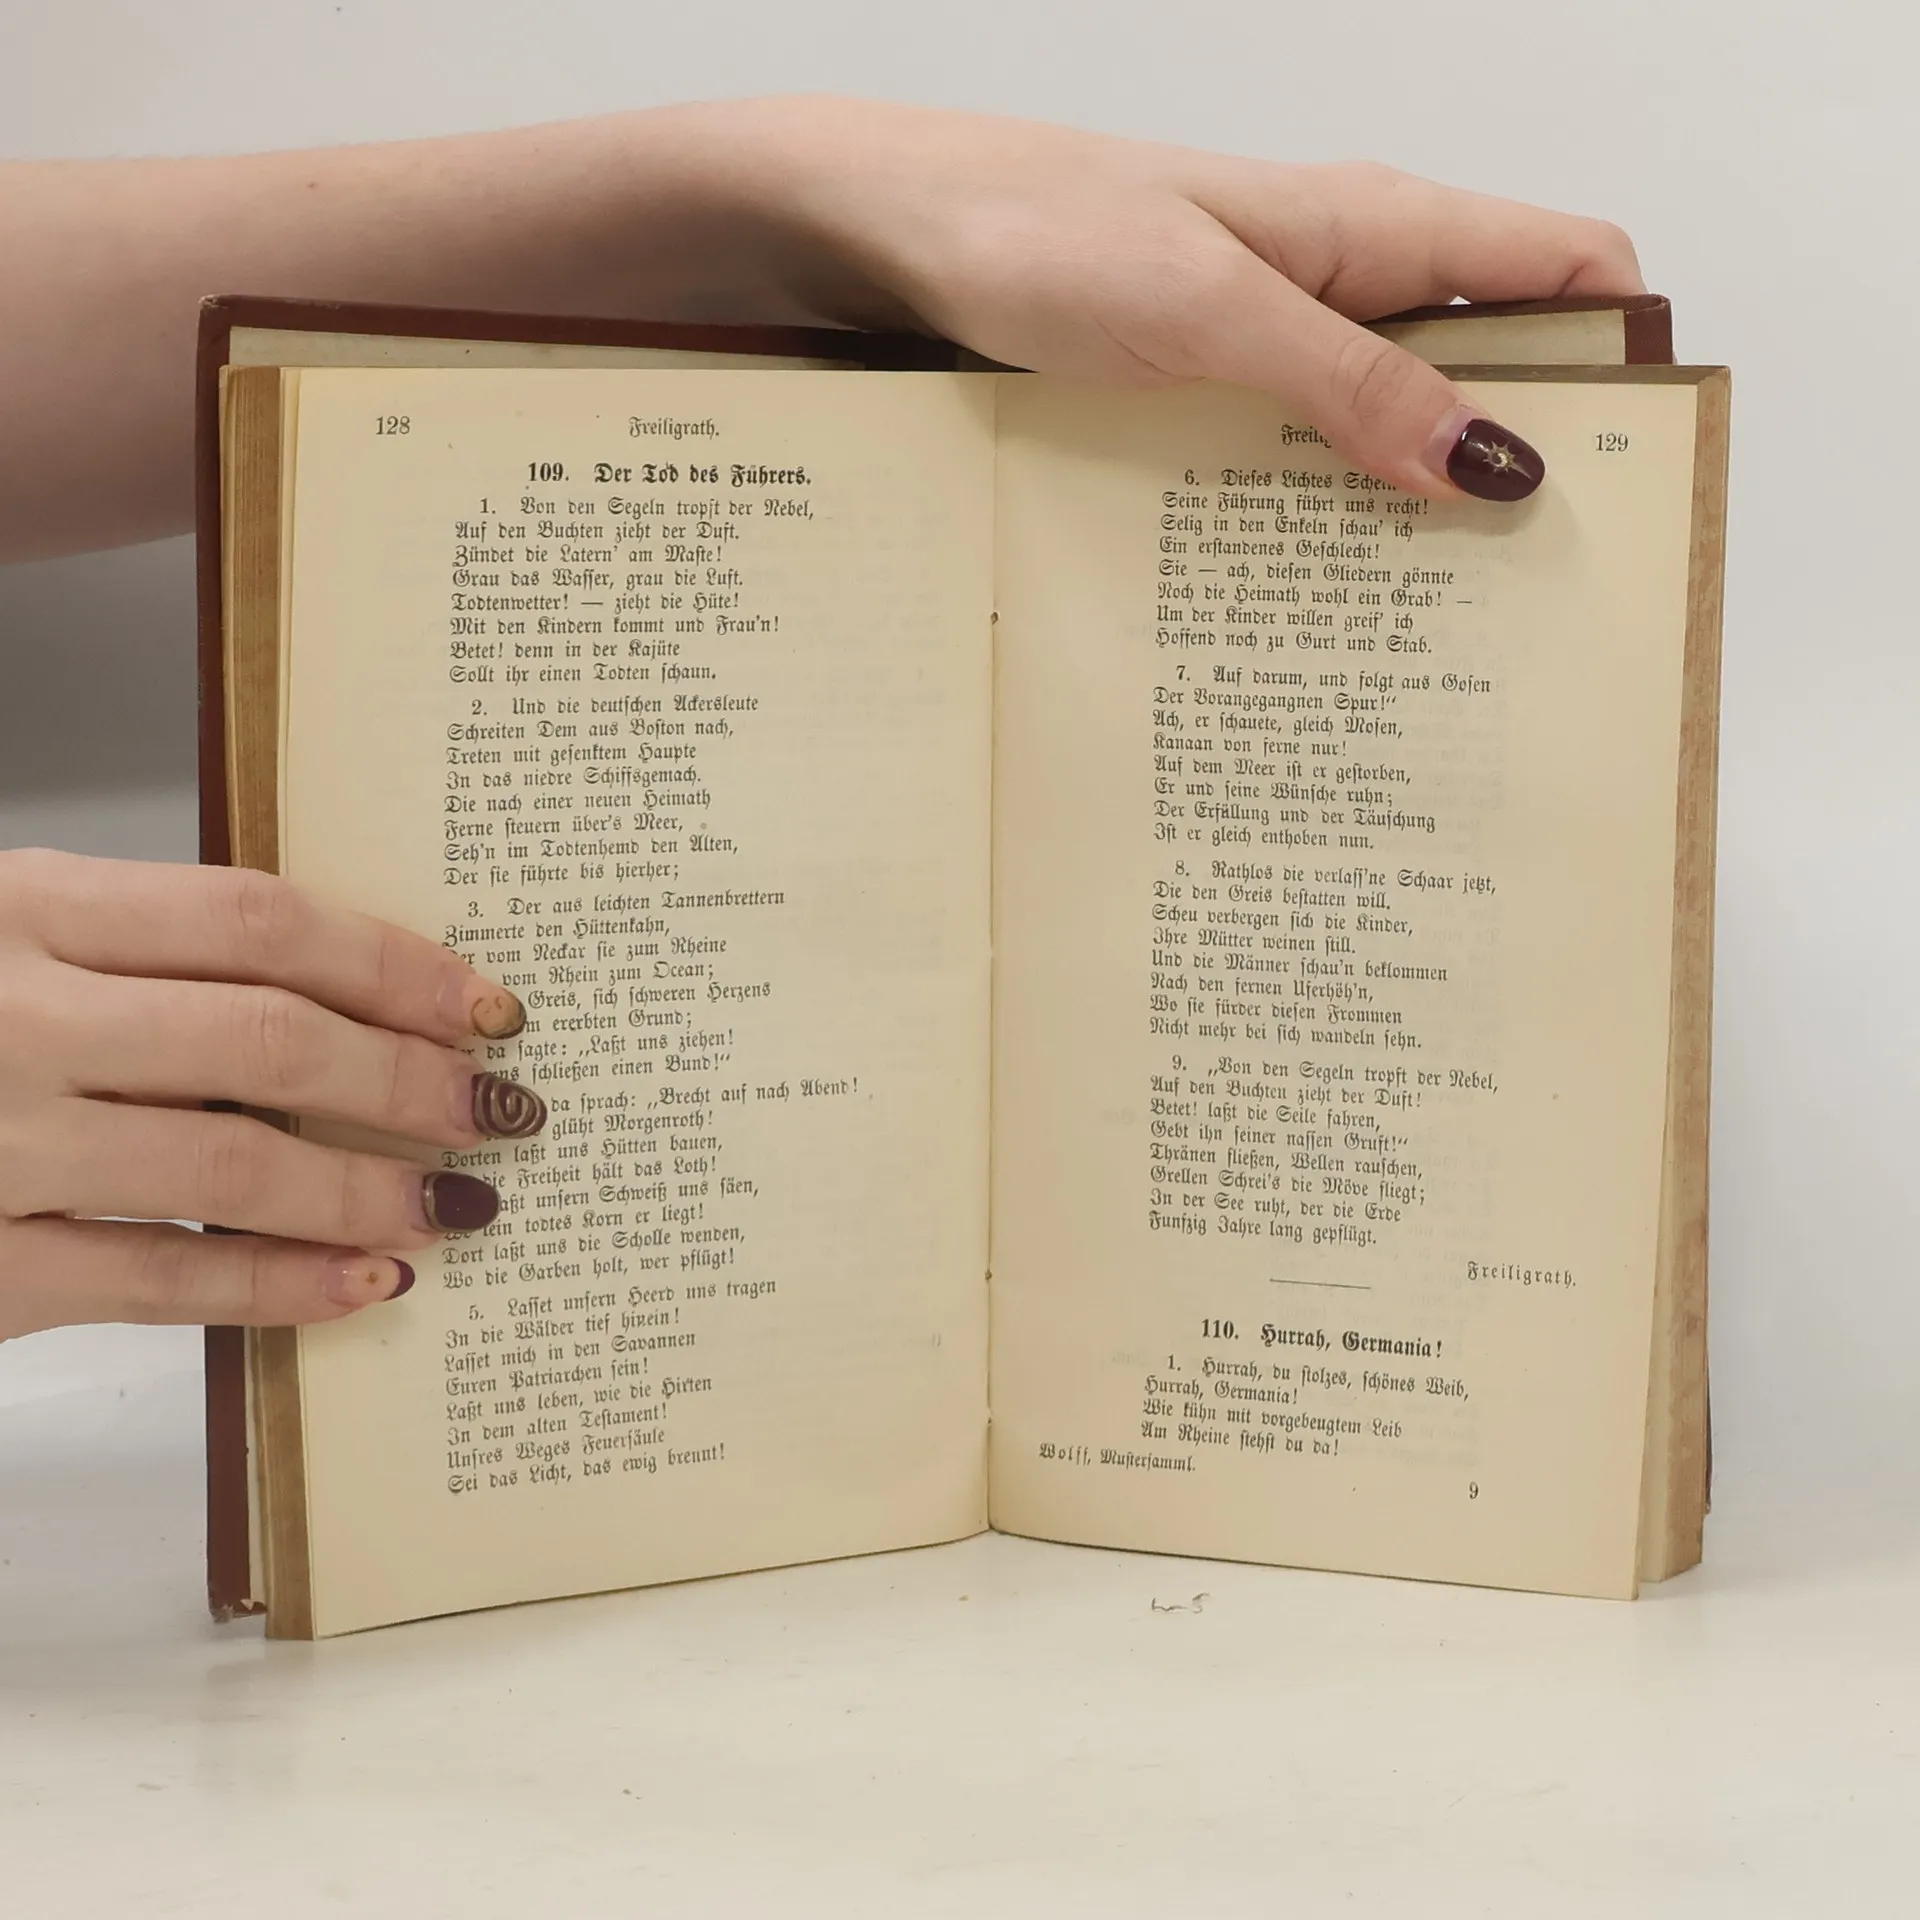 128
Freiligrath.
109. Der Tod des Führers.
1. Von den Segeln tropft der Nebel,
Auf den Buchten zieht der Duft.
Zündet die Latern' am Maste!
Grau das Wasser, grau die Luft.
Todtenwetter! — zieht die Hüte!
Mit den Kindern kommt und Frau'n!
Betet! denn in der Kajüte
Sollt ihr einen Todten schaun.
2. Und die deutschen Ackersleute
Schreiten Dem aus Boston nach,
Treten mit gesenktem Haupte
In das niedre Schiffsgemach.
Die nach einer neuen Heimath
Ferne steuern über's Meer,
Seh'n im Todtenhemd den Alten,
Der sie führte bis hierher;
3. Der aus leichten Tannenbrettern
Zimmerte den Hüttenkahn,
vom Neckar sie zum Rheine
vom Rhein zum Ocean;
Greis, sich schweren Herzens
ererbten Grund;
da sagte: „Laßt uns ziehen!
schließen einen Bund!“
da sprach: „Brecht auf nach Abend!
glüht Morgenroth!
Dorten laßt uns Hütten bauen,
die Freiheit hält das Loth!
unsern Schweiß uns säen,
todtes Korn er liegt!
Dort laßt uns die Scholle wenden,
Wo die Garben holt, wer pflügt!
5. Lasset unsern Heerd uns tragen
In die Wälder tief hinein!
Lasset mich in den Savannen
Euren Patriarchen sein!
Laßt uns leben, wie die Hirten
In dem alten Testament!
Unsres Weges Feuersäule
Sei das Licht, das ewig brennt!
129
6. Dieses Lichtes
Seine Führung führt uns recht!
Selig in den Enkeln schau' ich
Ein erstandenes Geschlecht!
Sie — ach, diesen Gliedern gönnte
Noch die Heimath wohl ein Grab! —
Um der Kinder willen greif' ich
Hoffend noch zu Gurt und Stab.
7. Auf darum, und folgt aus Gosen
Der Vorangegangnen Spur!“
Ach, er schauete, gleich Mosen,
Kanaan von ferne nur!
Auf dem Meer ist er gestorben,
Er und seine Wünsche ruhn;
Der Erfüllung und der Täuschung
Ist er gleich enthoben nun.
8. Rathlos die verlass'ne Schaar jetzt,
Die den Greis bestatten will.
Scheu verbergen sich die Kinder,
Ihre Mütter weinen still.
Und die Männer schau'n beklommen
Nach den fernen Uferhöh'n,
Wo sie fürder diesen Frommen
Nicht mehr bei sich wandeln sehn.
9. „Von den Segeln tropft der Nebel,
Auf den Buchten zieht der Duft!
Betet! laßt die Seile fahren,
Gebt ihn seiner nassen Gruft!“
Thränen fließen, Wellen rauschen,
Grellen Schrei's die Möve fliegt;
In der See ruht, der die Erde
Funfzig Jahre lang gepflügt.
Freiligrath.
110. Hurrah, Germania!
1. Hurrah, du stolzes, schönes Weib,
Hurrah, Germania!
Wie kühn mit vorgebeugtem Leib
Am Rheine stehst du da!
Wolff, Mustersamml.
9